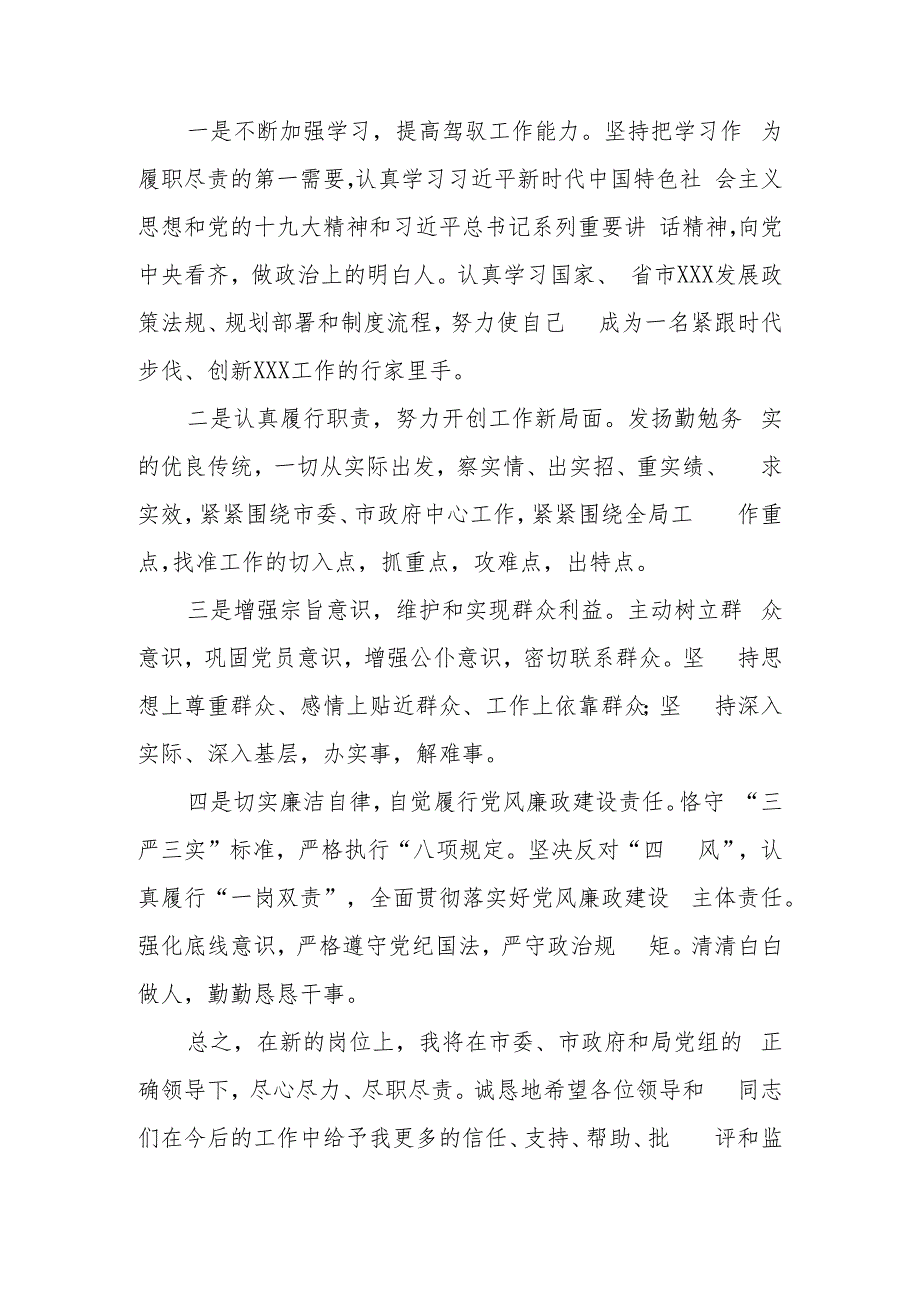 一是不断加强学习，提高驾驭工作能力。坚持把学习作 为
履职尽责的第一需要,认真学习习近平新时代中国特色社 会主义
思想和党的十九大精神和习近平总书记系列重要讲 话精神,向党
中央看齐，做政治上的明白人。认真学习国家、 省市XXX发展政
策法规、规划部署和制度流程，努力使自己 成为一名紧跟时代
步伐、创新XXX工作的行家里手。
二是认真履行职责，努力开创工作新局面。发扬勤勉务 实
的优良传统，一切从实际出发，察实情、出实招、重实绩、 求
实效,紧紧围绕市委、市政府中心工作,紧紧围绕全局工 作重
点,找准工作的切入点，抓重点，攻难点，出特点。
三是增强宗旨意识，维护和实现群众利益。主动树立群 众
意识，巩固党员意识，增强公仆意识，密切联系群众。坚 持思
想上尊重群众、感情上贴近群众、工作上依靠群众；坚 持深入
实际、深入基层，办实事，解难事。
四是切实廉洁自律，自觉履行党风廉政建设责任。恪守 “三
严三实”标准，严格执行“八项规定。坚决反对“四 风”，认
真履行“一岗双责”，全面贯彻落实好党风廉政建设 主体责任。
强化底线意识，严格遵守党纪国法，严守政治规 矩。清清白白
做人，勤勤恳恳干事。
总之，在新的岗位上，我将在市委、市政府和局党组的 正
确领导下，尽心尽力、尽职尽责。诚恳地希望各位领导和 同志
们在今后的工作中给予我更多的信任、支持、帮助、批 评和监